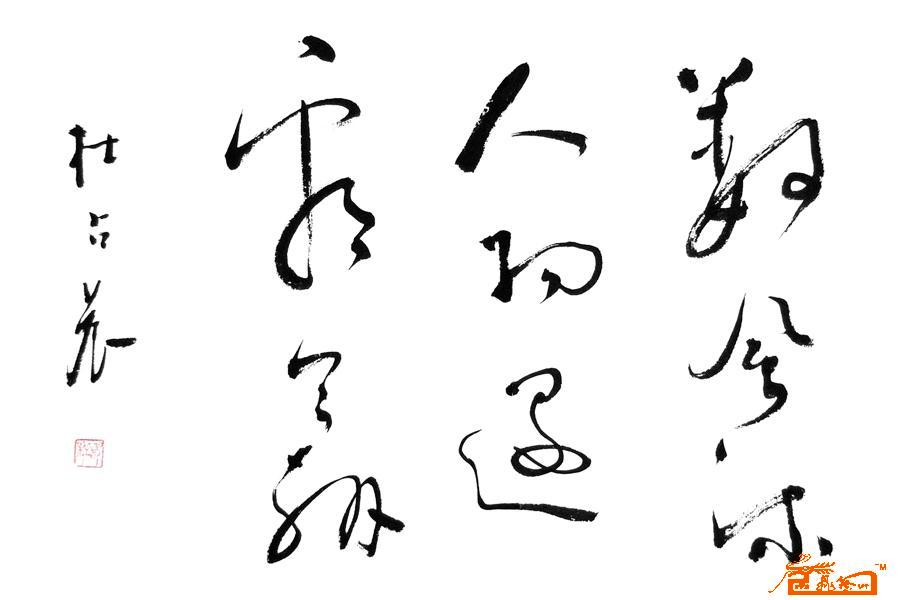 數風流
人物還
看今朝
杜占